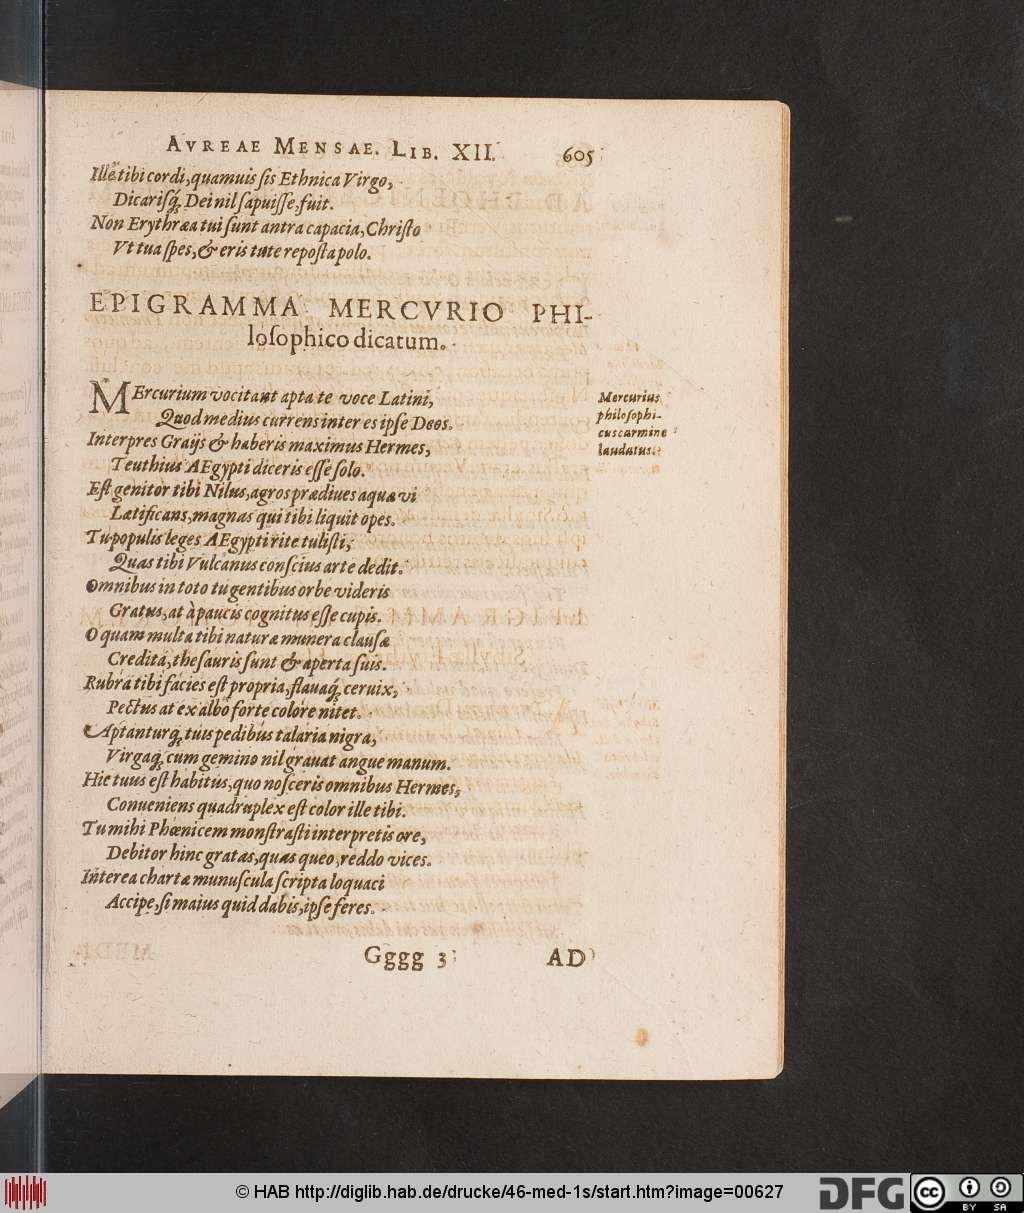 AVREAE MENSAE. LIB. XII. 605
Ille tibi cordi, quamuis sis Ethnica Virgo,
Dicarisq́; Dei nil sapuisse, fuit.
Non Erythræa tui sunt antra capacia, Christo
Vt tua spes, & eris tute reposta polo.
EPIGRAMMA MERCVRIO PHI-
losophico dicatum.
MErcurium vocitant apta te voce Latini,
Quod medius currens inter es ipse Deos.
Interpres Graijs & haberis maximus Hermes,
Teuthius AEgypti diceris esse solo.
Est genitor tibi Nilus, agros prædiues aqua vi
Lætificans, magnas qui tibi liquit opes.
Tu populis leges AEgypti rite tulisti,
Quas tibi Vulcanus conscius arte dedit.
Omnibus in toto tu gentibus orbe videris
Gratus, at à paucis cognitus esse cupis.
O quam multa tibi naturæ munera clausæ
Credita, thesauris sunt & aperta suis.
Rubra tibi facies est propria, flauaq́; ceruix,
Pectus at ex albo forte colore nitet.
Aptanturq́; tuis pedibus talaria nigra,
Virgaq́; cum gemino nil grauat angue manum.
Hic tuus est habitus, quo nosceris omnibus Hermes,
Conueniens quadruplex est color ille tibi.
Tu mihi Phœnicem monstrasti interpretis ore,
Debitor hinc gratas, quas queo, reddo vices.
Interea chartæ munuscula scripta loquaci
Accipe, si maius quid dabis, ipse feres.
Mercurius
philosophi-
cus carmine
laudatus.
Gggg 3 AD
MEDI-
© HAB http://diglib.hab.de/drucke/46-med-1s/start.htm?image=00627
DFG
cc BY SA